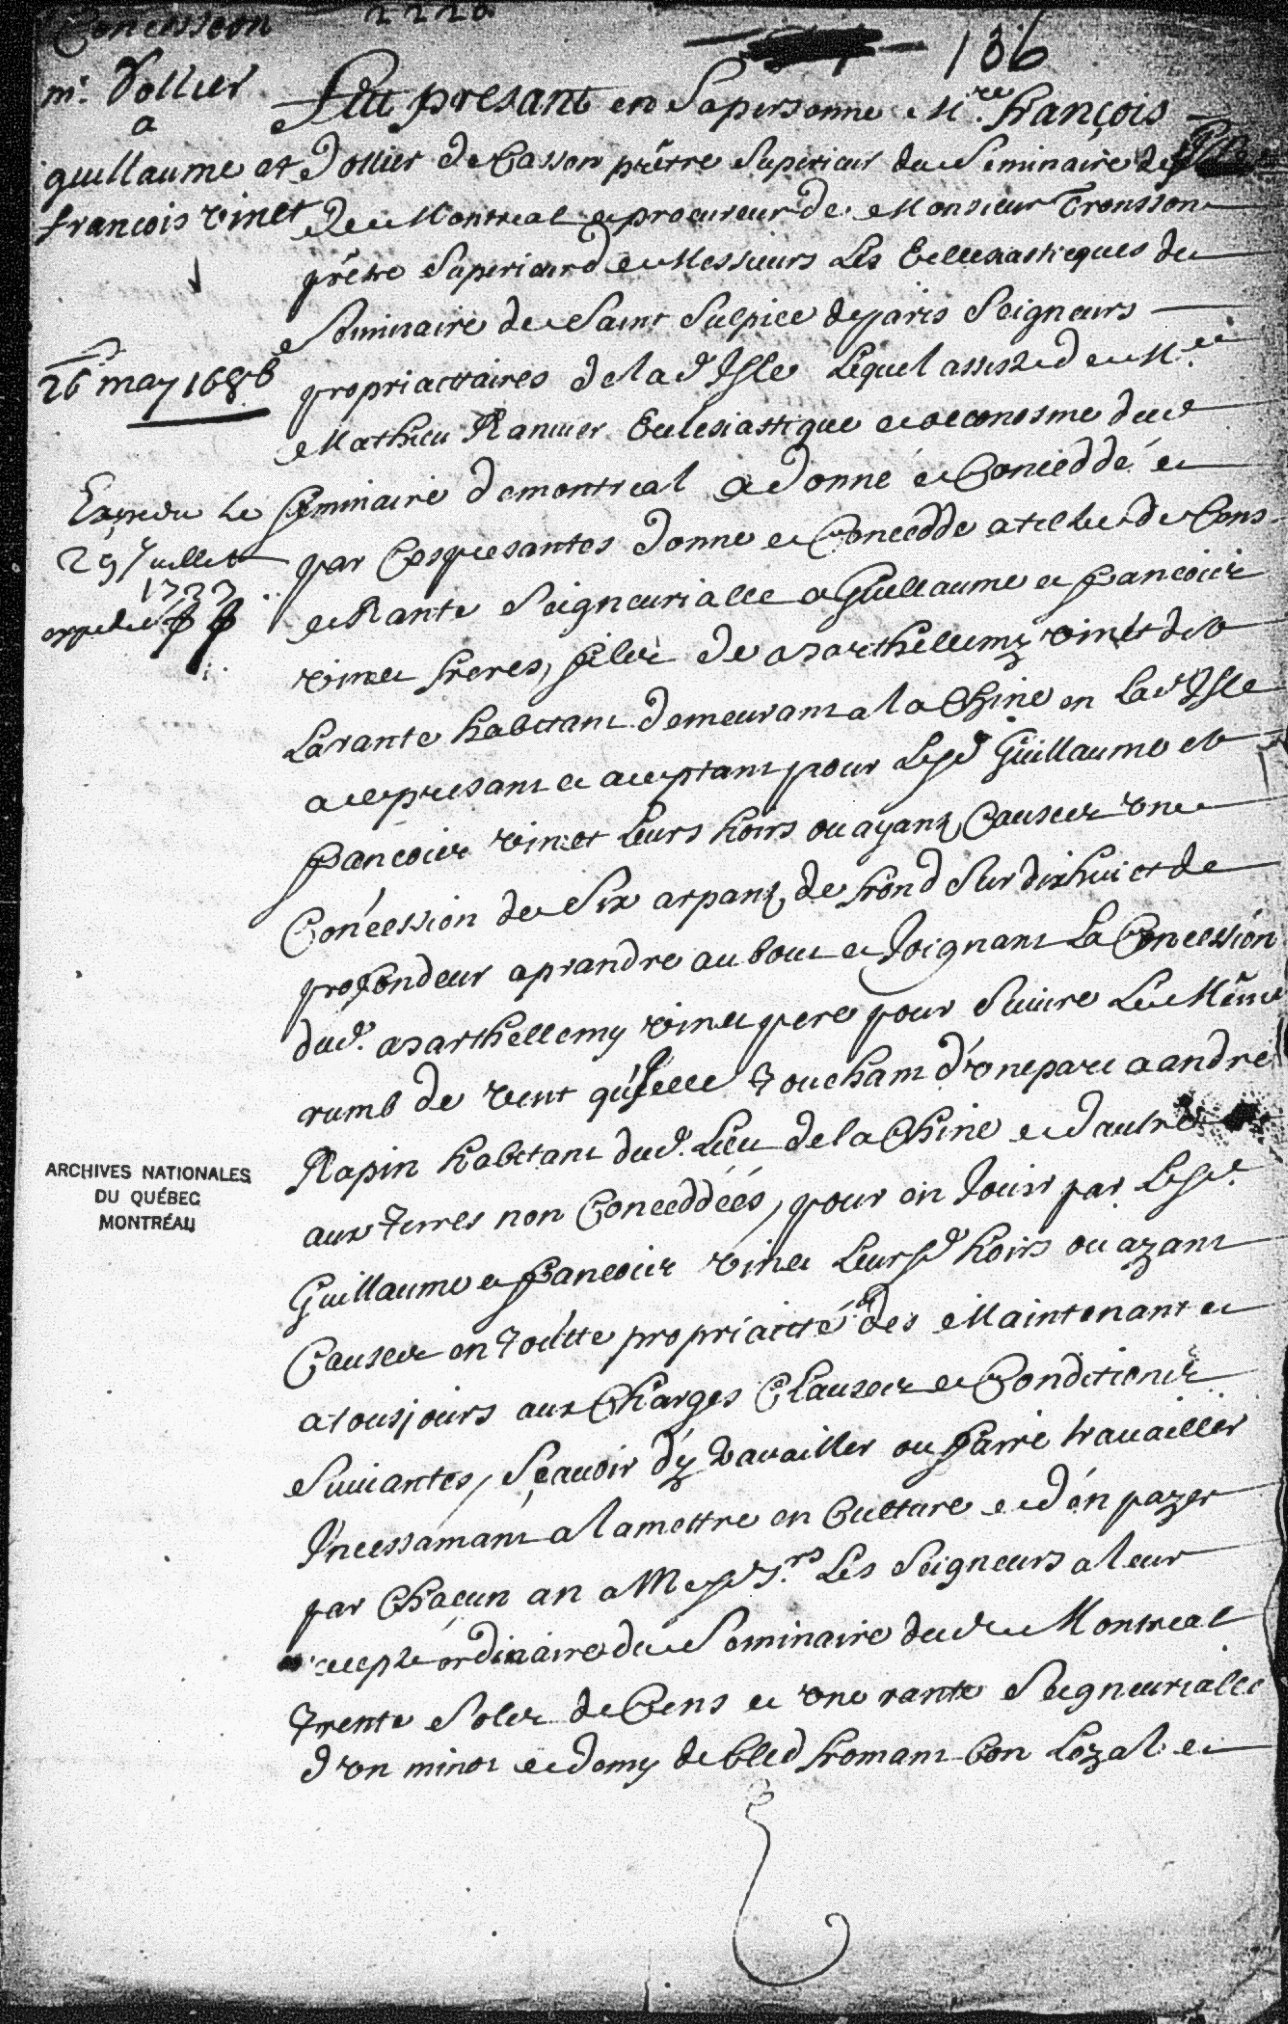 Concession
2220
136
mr. Dollier
a
guillaume et
francois vinet
26 may 1686
Expedu le
29 Juillet
1733
expedié
ARCHIVES NATIONALES
DU QUÉBEC
MONTRÉAL
Fut presant en Sa personne Mre. françois
Dollier de Casson prêtre Superieur du Seminaire de
de Montreal et procureur de Monsieur Tronsson
prêtre Superieur de Messieurs Les Eclesiasticques du
Seminaire de Saint Sulpice de paris Seigneurs
propriaittaires de la de Isle Lequel assisté de Mre
Mathieu Ranuier Eclesiastique et oeconosme dud
Seminaire de montreal a donné et Conceddé et
par Cespresantes donne et Concedde a tiltre de Cens
et Rante Seigneurialle a Guillaume et francois
vinet freres, fils de Barthellemy vinet dit
Larante habitant demeurant a la Chine en Lad Isle
a ce presant et acceptant pour Lesd Guillaume et
francois vinet Leurs hoirs ou ayans Causes une
Concession de Six arpans de frond Sur dixhuict de
profondeur a prandre au bout et Joignant La Concession
dud. Barthellemy vinet pere pour Suivre Le Même
rumb de vent qu'Jcelle Touchant d'une part a andré
Rapin habitant dud. Lieu de la Chine et d'autre
aux terres non Conceddéés, pour en Jouir par Lesd.
Guillaume et francois vinet Leursd hoirs ou ayant
Causes en Toutte propriaitté des Maintenant et
a tousjours aux Charges Clauses et Conditions
Suivantes, Sçavoir d'y travailler ou faire travailler
Jncessamant a la mettre en Culture et d'en payer
par Chacun an a Mesd. Srs. Les Seigneurs a leur
recepte ordinaire du Seminaire dud Montreal
Trente Sols de Cens et une rante Seigneurialle
d'un minot et demy de bled fromant bon Loyal et